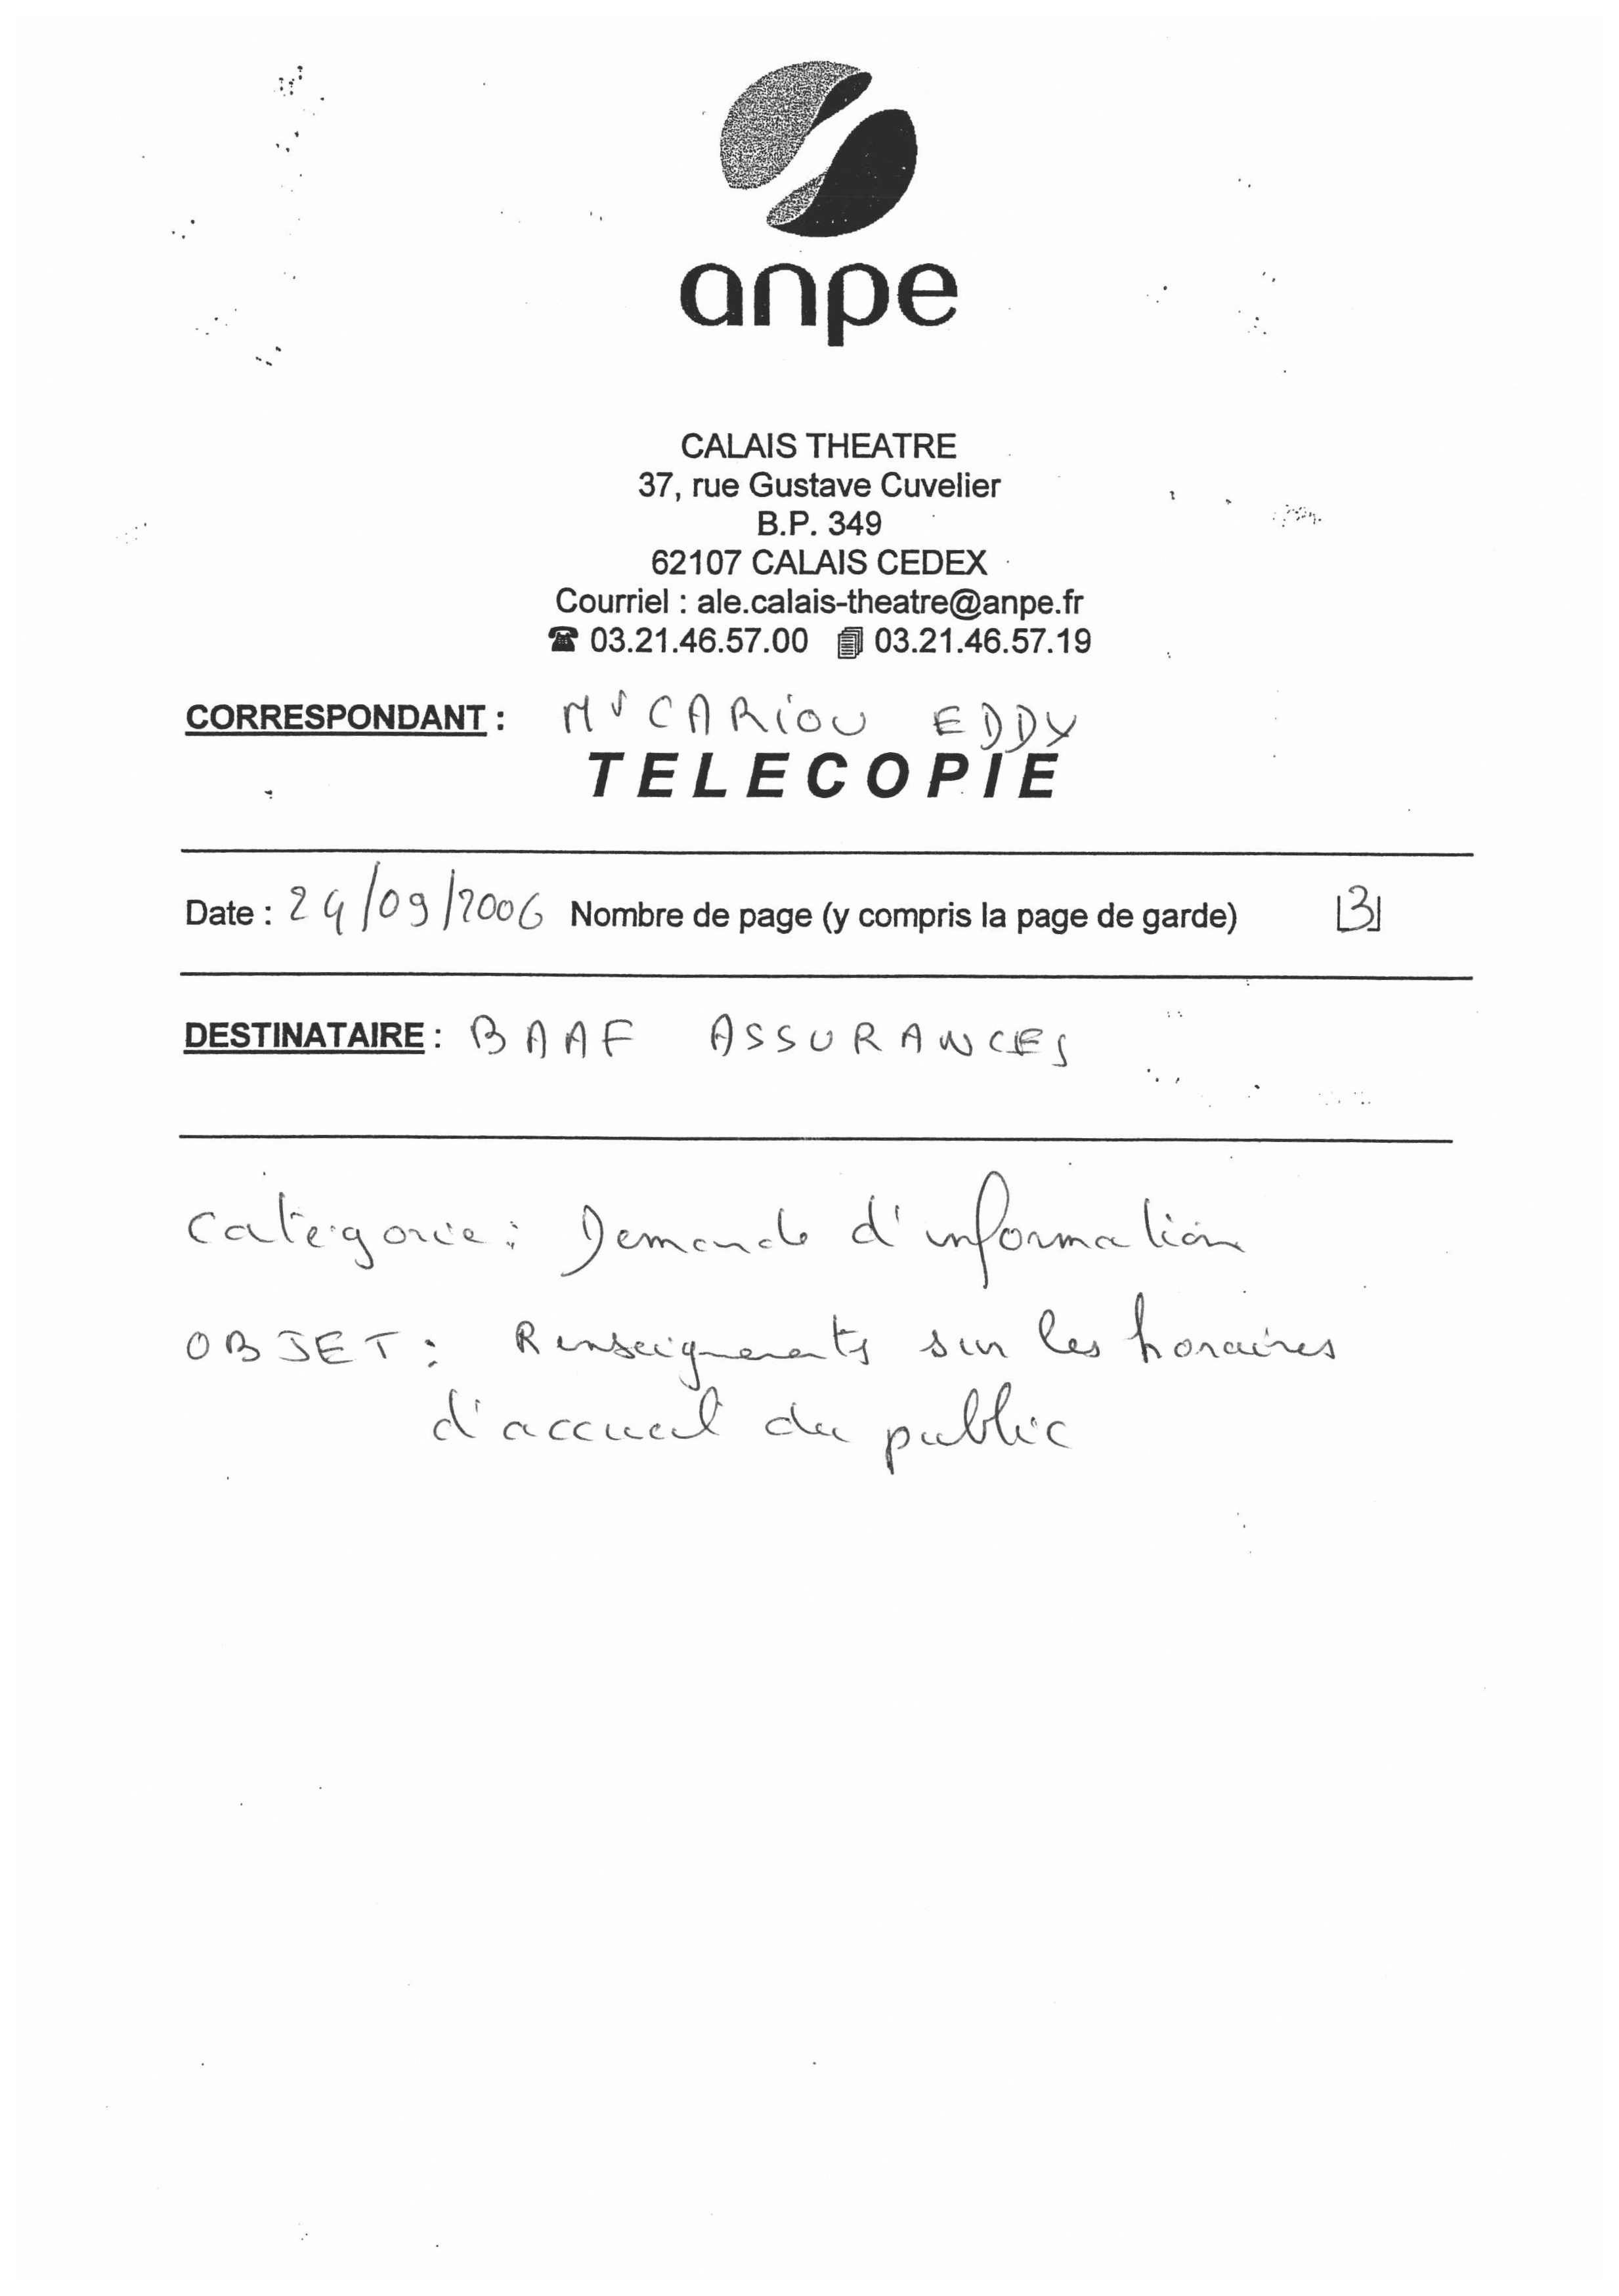 anpe
CALAIS THEATRE
37, rue Gustave Cuvelier
B.P. 349
62107 CALAIS CEDEX
Courriel : ale.calais-theatre@anpe.fr
☎ 03.21.46.57.00 03.21.46.57.19
CORRESPONDANT : Mr CARiOU EDDY
TELECOPIE
Date : 24/09/2006 Nombre de page (y compris la page de garde) 3
DESTINATAIRE : BAAF ASSURANCES
Catégorie : Demande d'information
OBJET : Renseignements sur les horaires
d'accueil du public